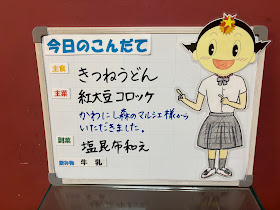 今日のこんだて
主食 きつねうどん
主菜 紅大豆コロッケ
かわにし森のマルシェ様から
いただきました。
副菜 塩昆布和え
飲み物 牛乳